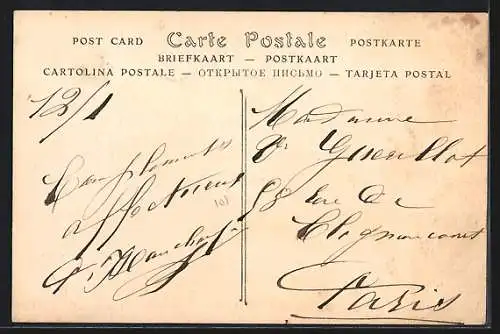 POST CARD Carte Postale POSTKARTE
BRIEFKAART — POSTKAART
CARTOLINA POSTALE — ОТКРЫТОЕ ПИСЬМО — TARJETA POSTAL
12/1
Compliments
affectueux
Madame
Vve Gueullot
58 Rue de
Clignancourt
Paris